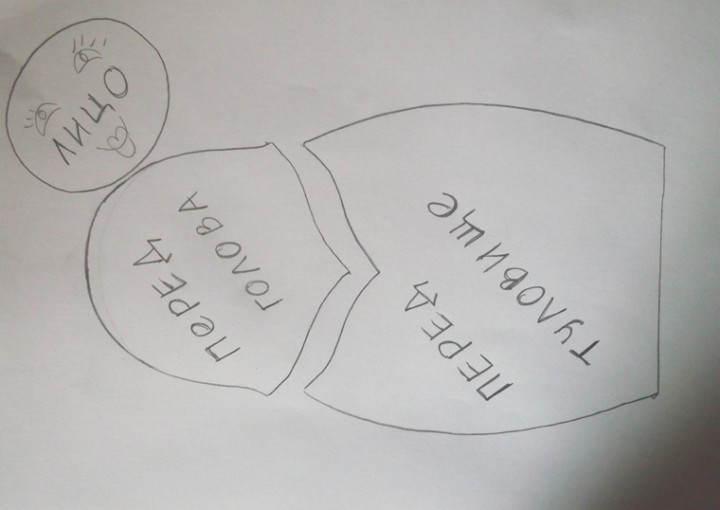 ЛИЦО
ПЕРЕД
ГОЛОВА
ПЕРЕД
ТУЛОВИЩЕ